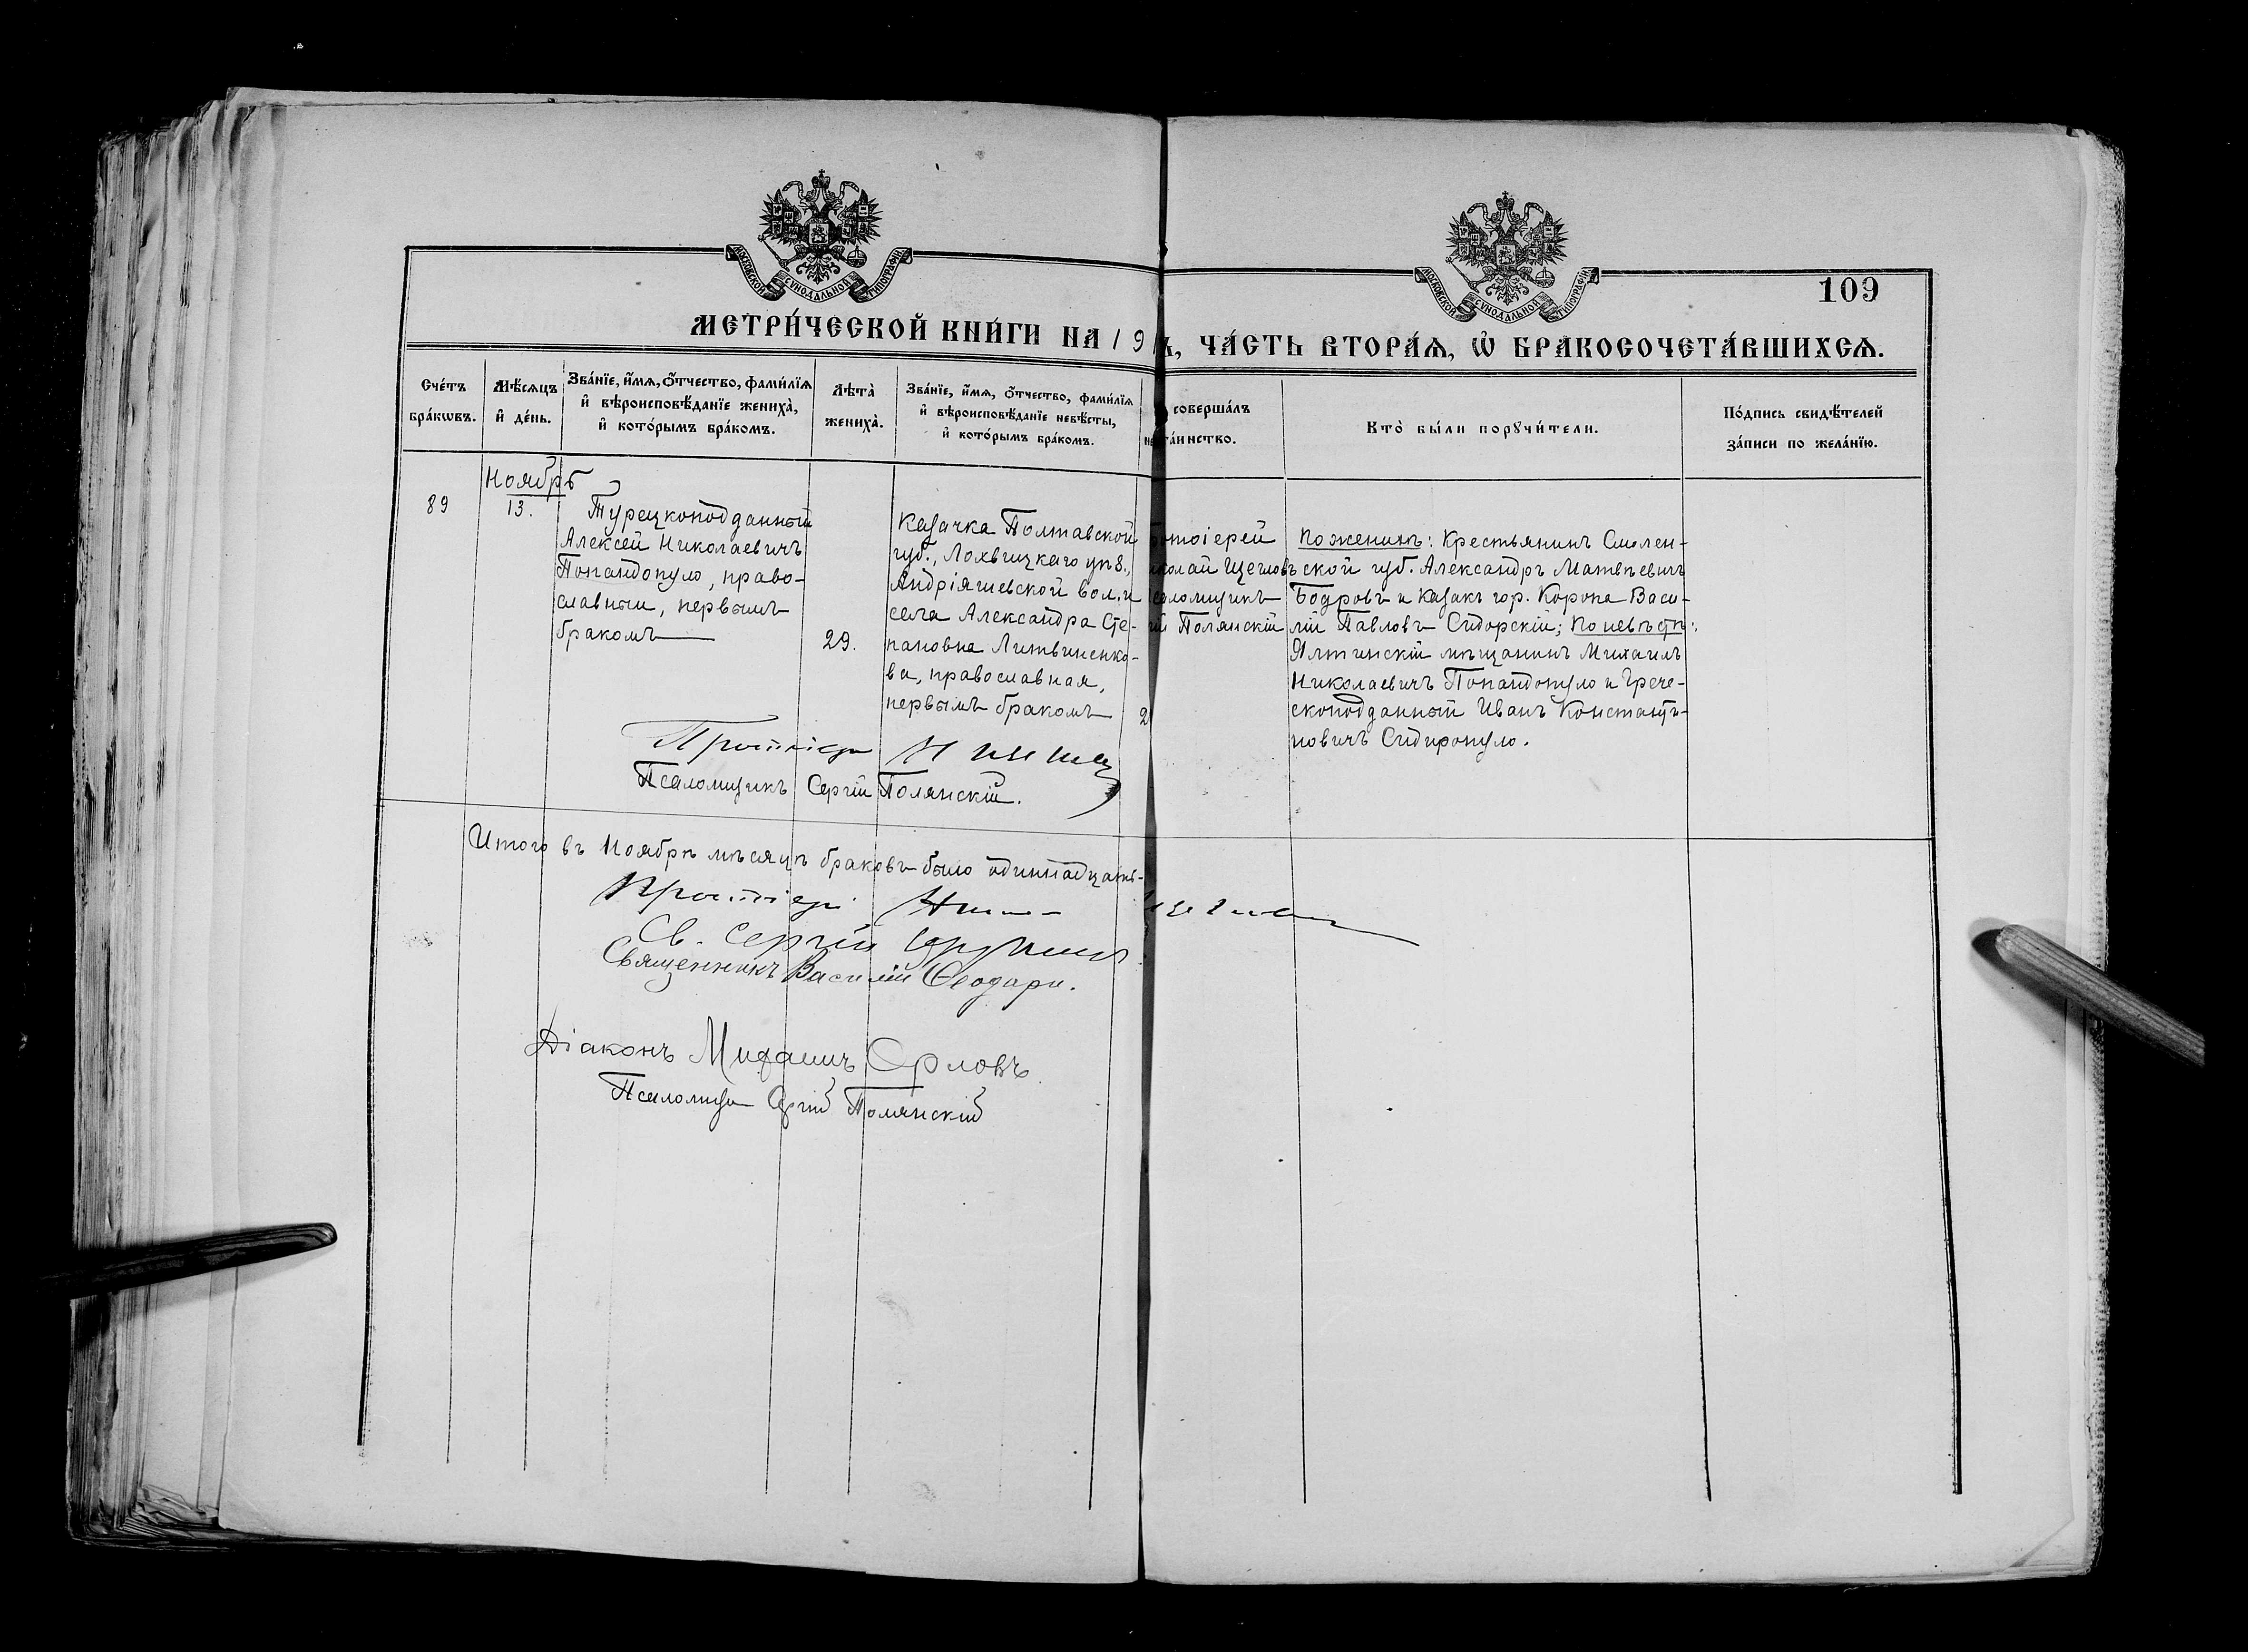 МОСКОВСКОЙ СУНОДАЛЬНОЙ ТИПОГРАФІИ
МОСКОВСКОЙ СУНОДАЛЬНОЙ ТИПОГРАФІИ
109
МЕТРИ́ЧЕСКОЙ КНИ́ГИ НА 19
ЧА́СТЬ ВТОРА́Ѧ, Ѡ БРАКОСОЧЕТА́ВШИХСѦ.
Сче́тъ
бра́кѡвъ.
Мѣ́сяцъ
и҆ де́нь.
Зва́нїе, и҆́мѧ, ѻ҆́тчество, фами́лїѧ
и҆ вѣроисповѣ́данїе жениха̀,
и҆ кото́рымъ бра́комъ.
Лѣта̀
жениха̀.
Зва́нїе, и҆́мѧ, ѻ҆́тчество, фами́лїѧ
и҆ вѣроисповѣ́данїе невѣ́сты,
и҆ кото́рымъ бра́комъ.
соверша́лъ
та́инство.
Кто̀ бы́ли порꙋчи́тели.
По́дпись свидѣ́телей
за́писи по жела́нїю.
Ноябрь
89
13.
Турецкоподданный
Алексей Николаевичъ
Попандопуло, право-
славный, первымъ
бракомъ
29.
Казачка Полтавской
губ., Лохвицкаго уѣз.,
Андріяшевской вол. и
села Александра Сте-
пановна Литвиненко-
ва, православная,
первымъ бракомъ
2
ротоіерей
иколай Щегловъ
саломщикъ
ій Полянскій
По женихѣ: Крестьянинъ Смолен-
ской губ. Александръ Матвѣевичъ
Бодровъ и казакъ гор. Коропа Васи-
лій Павловъ Сидорскій; По невѣстѣ:
Ялтинскій мѣщанинъ Михаилъ
Николаевичъ Попандопуло и Грече-
скоподданный Иванъ Константи-
новичъ Сидиропуло.
Протоіерей Н
Псаломщикъ Сергій Полянскій.
Итого въ Ноябрѣ мѣсяцѣ браковъ было одиннадцать.
Протоіерей
Св. Сергій
Священникъ Василій Ѳеодари.
Діаконъ Михаилъ Орловъ
Псаломщи Сергій Полянскій